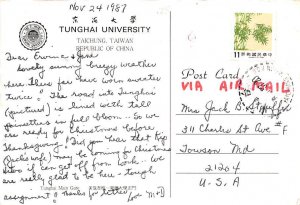 Nov 24 1987
東海大學
TUNGHAI UNIVERSITY
TAICHUNG, TAIWAN
REPUBLIC OF CHINA
Dear
lovely sunny breezy weather
here. Thus far have worn sweater
twice. The road into Tunghai
(pictured) is lined with tall
poinsettias in full bloom - So we
are ready for Christmas before
Thanksgiving! Did you hear that Kip
may be coming for Christmas
also? Ken got off from work. We
are really glad to be here - tough
assignment! Thanks for letters. Love
Tunghai Main Gate
11
Post Card
VIA AIR MAIL
Mrs Jack B.
311 Charles St Ave
Towson Md
21204
U-S.A